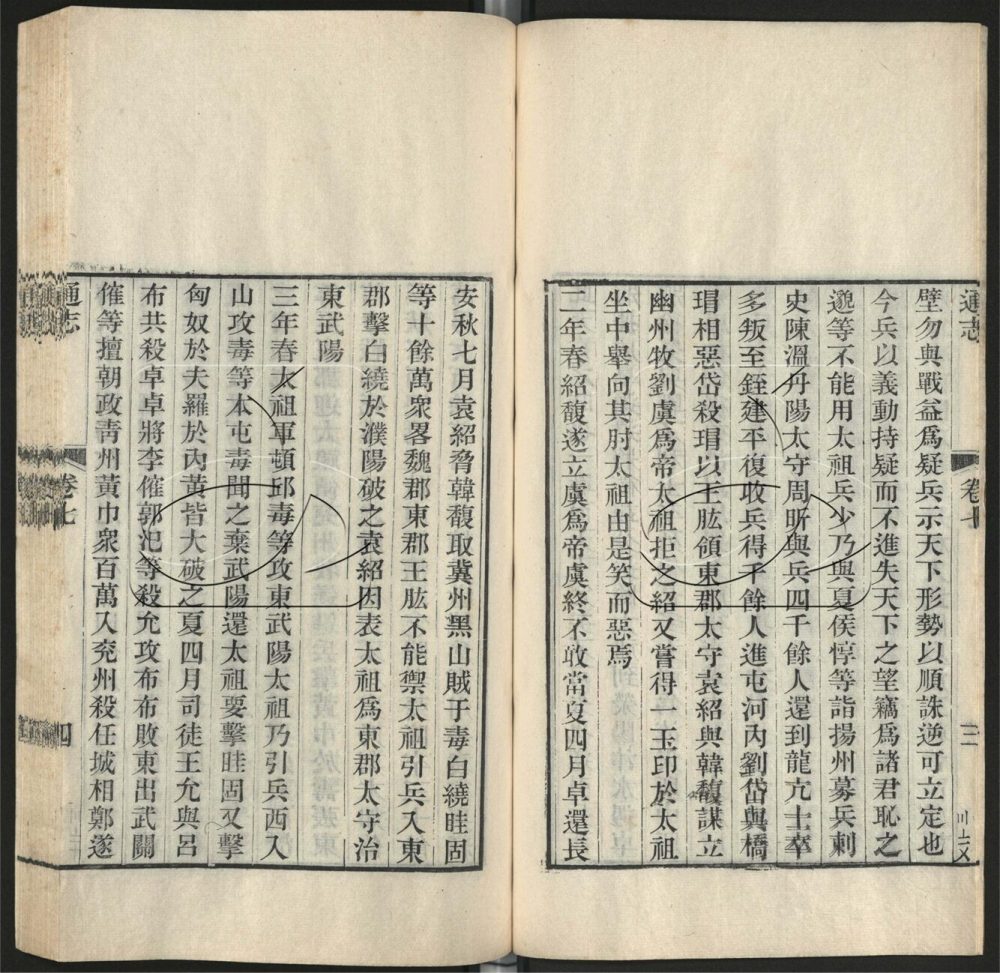 通志
卷七
三
壁勿與戰益爲疑兵示天下形勢以順誅逆可立定也
今兵以義動持疑而不進失天下之望竊爲諸君恥之
邈等不能用太祖兵少乃與夏侯惇等詣揚州募兵刺
史陳溫丹陽太守周昕與兵四千餘人還到龍亢士卒
多叛至銍建平復收兵得千餘人進屯河內劉岱與橋
瑁相惡岱殺瑁以王肱領東郡太守袁紹與韓馥謀立
幽州牧劉虞爲帝太祖拒之紹又嘗得一玉印於太祖
坐中舉向其肘太祖由是笑而惡焉
二年春紹馥遂立虞爲帝虞終不敢當夏四月卓還長
安秋七月袁紹脅韓馥取冀州黑山賊于毒白繞眭固
等十餘萬衆畧魏郡東郡王肱不能禦太祖引兵入東
郡擊白繞於濮陽破之袁紹因表太祖爲東郡太守治
東武陽
三年春太祖軍頓邱毒等攻東武陽太祖乃引兵西入
山攻毒等本屯毒聞之棄武陽還太祖要擊眭固又擊
匈奴於夫羅於內黃皆大破之夏四月司徒王允與呂
布共殺卓卓將李傕郭汜等殺允攻布布敗東出武關
傕等擅朝政靑州黃巾衆百萬入兖州殺任城相鄭遂
通志
卷七
四